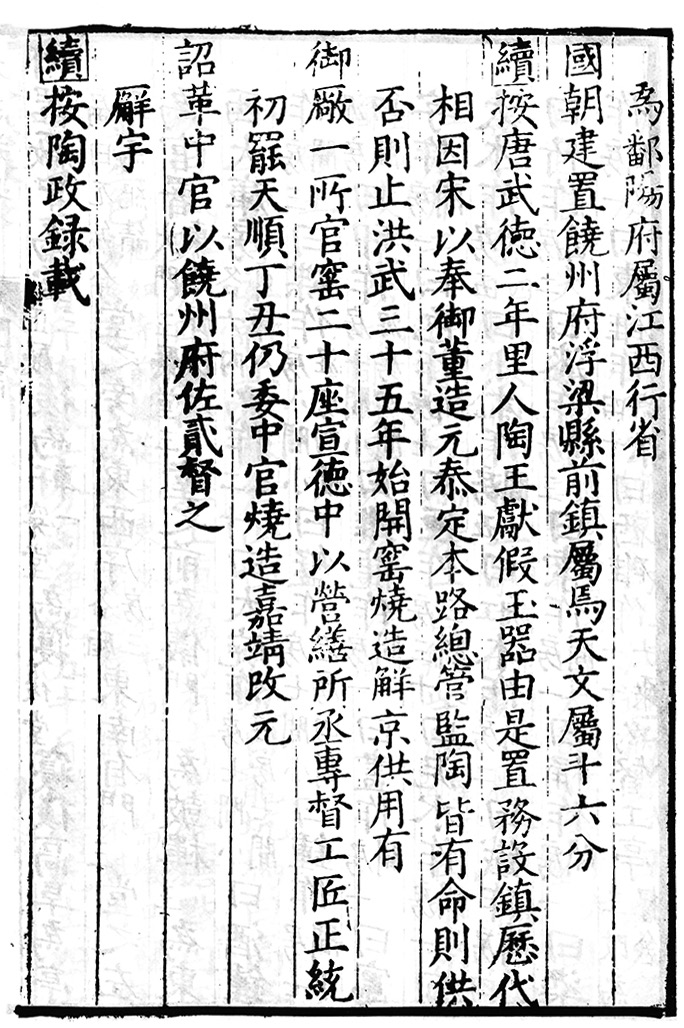 為鄱陽府屬江西行省
國朝建置饒州府浮梁縣前鎮屬焉天文屬斗六分
續按唐武德二年里人陶王獻假玉器由是置務設鎮歷代
相因宋以奉御董造元泰定本路總管監陶皆有命則供
否則止洪武三十五年始開窑燒造解京供用有
御厰一所官窑二十座宣德中以營繕所丞專督工匠正統
初罷天順丁丑仍委中官燒造嘉靖改元
詔革中官以饒州府佐貳督之
廨宇
續按陶政録載